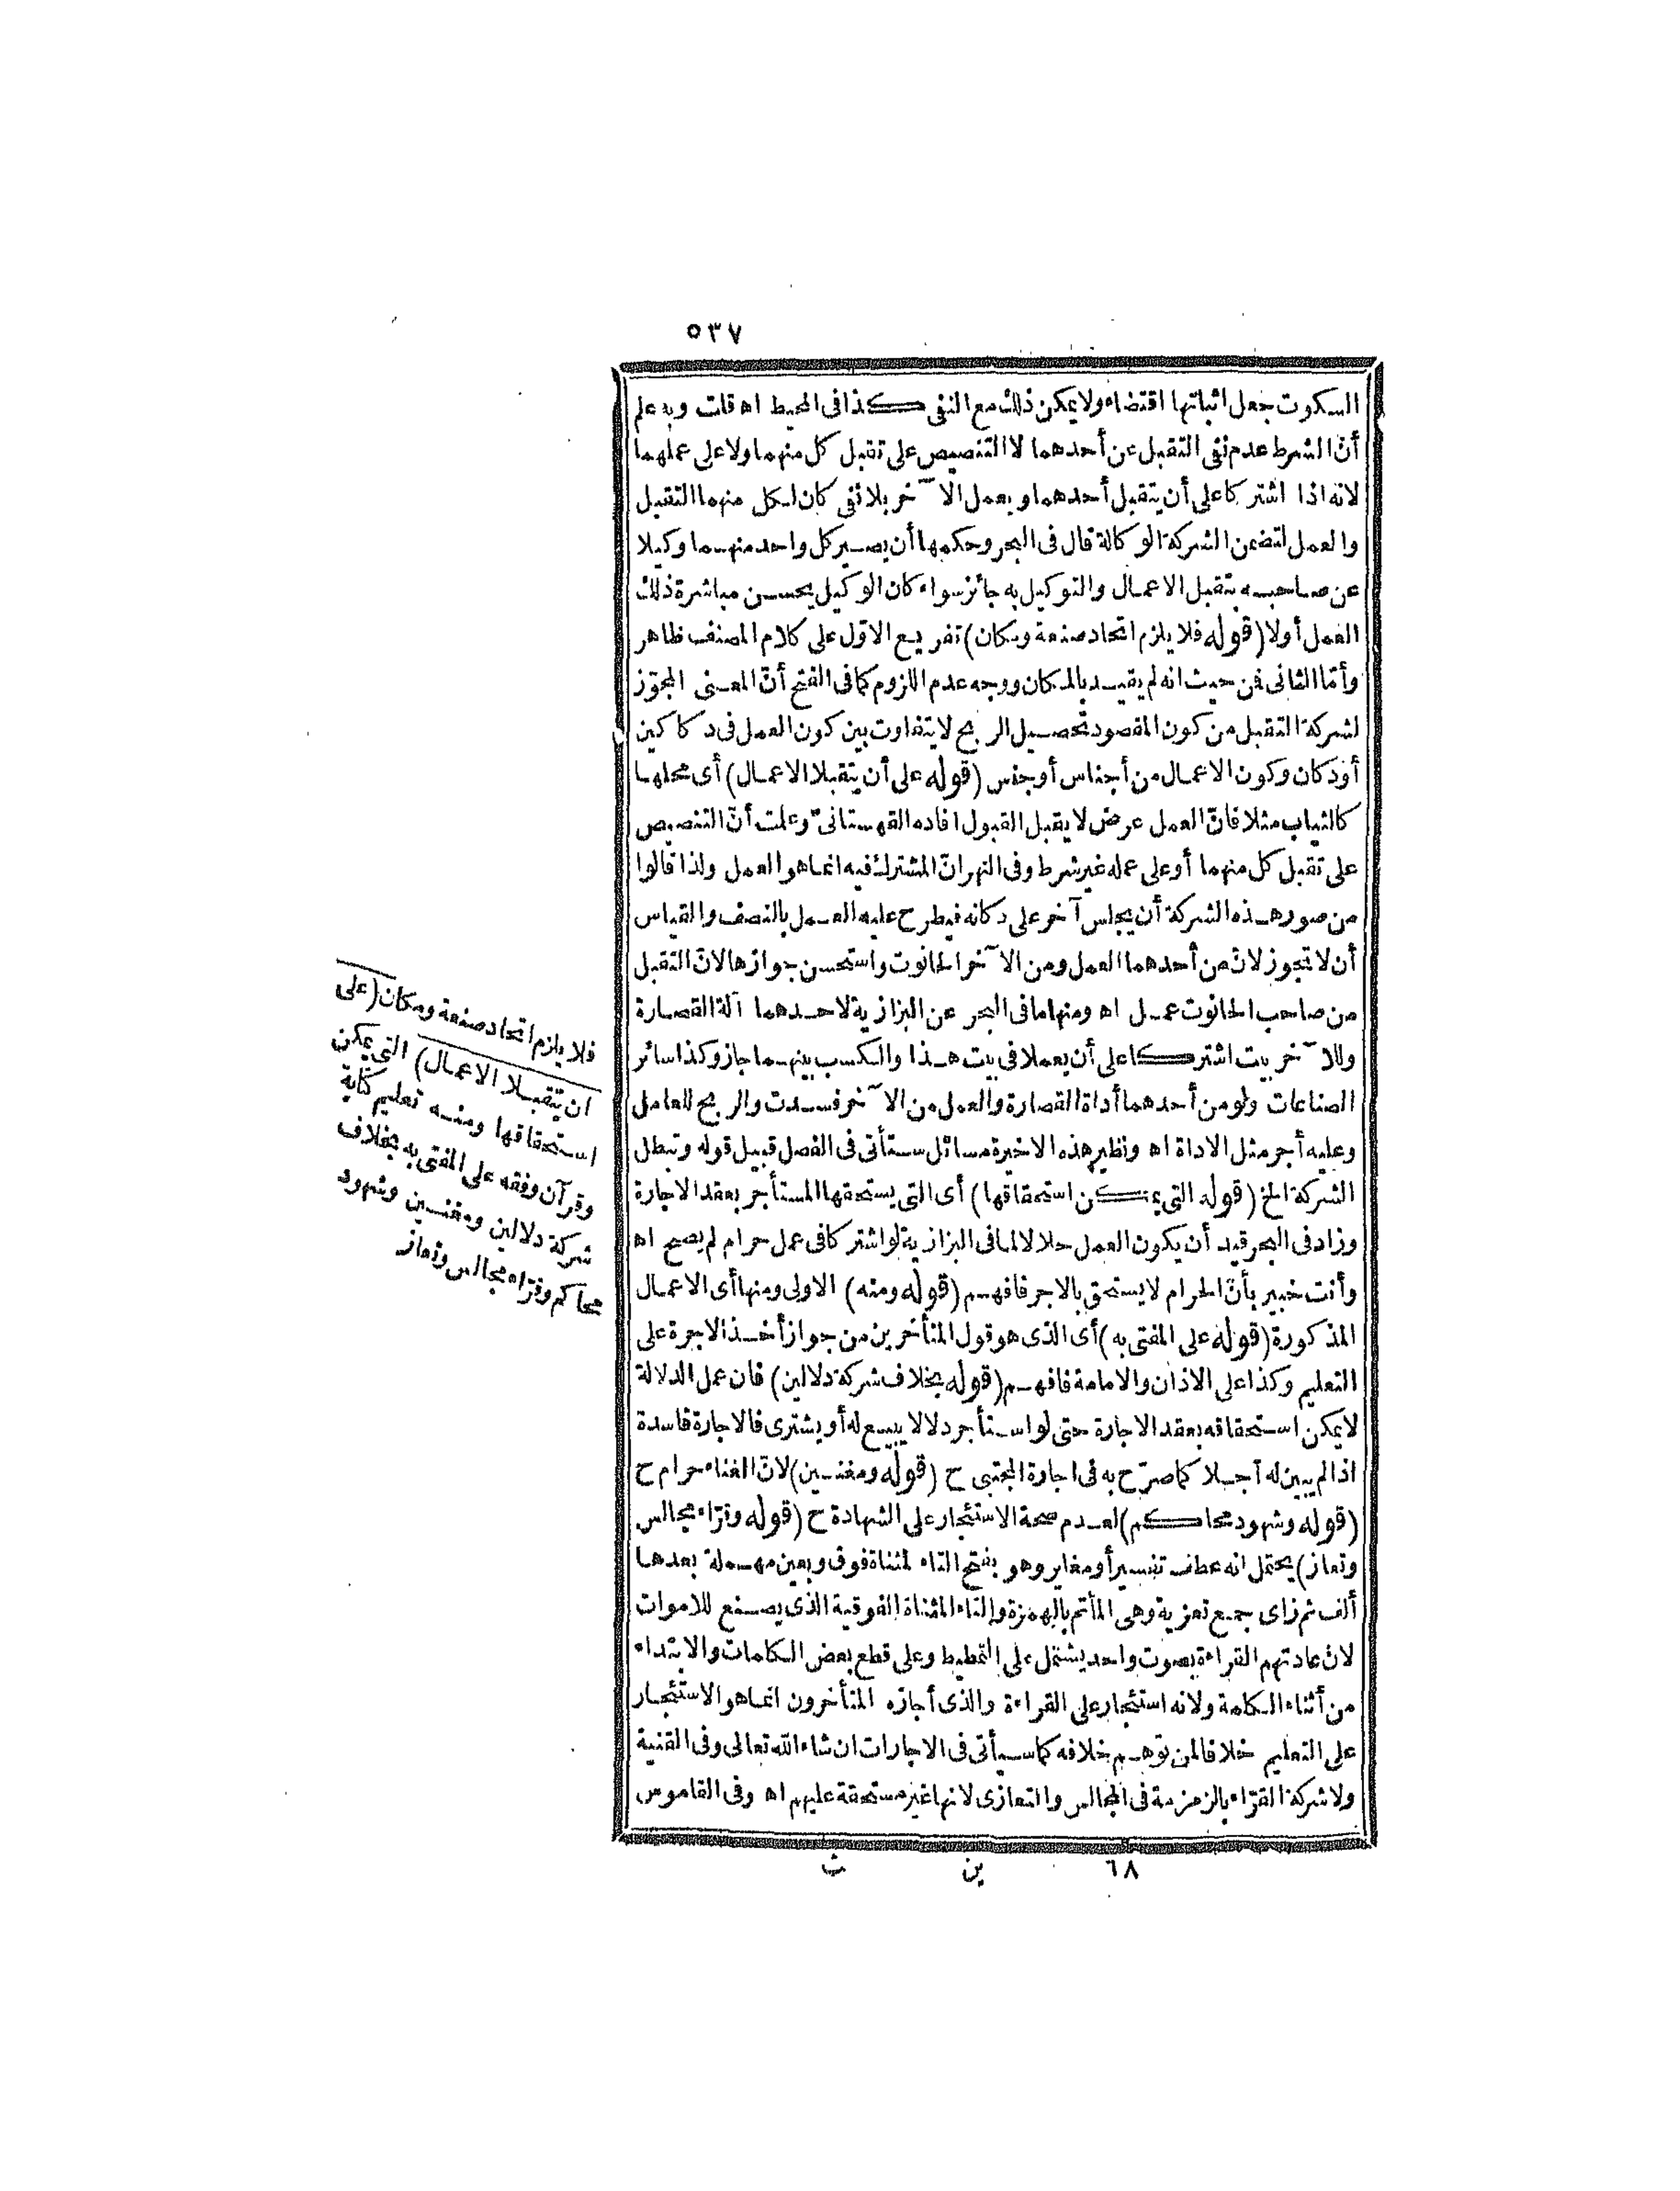 ٥٣٧
السكوت جعل اثباتها اقتضاء ولا يمكن ذلك مع النفى كذا فى المحيط اه قلت وبه علم
أنّ الشرط عدم نفى التقبل عن أحدهما لا التنصيص على تقبل كل منهما ولا على عملهما
لانه اذا اشتركا على أن يتقبل أحدهما ويعمل الآخر بلا نفى كان لكل منهما التقبل
والعمل لتضمن الشركة الوكالة قال فى البحر وحكمها أن يصير كل واحد منهما وكيلا
عن صاحبه بتقبل الاعمال والتوكيل به جائز سواء كان الوكيل يحسن مباشرة ذلك
العمل أولا (قوله فلا يلزم اتحاد صنعة ومكان) تفريع الاوّل على كلام المصنف ظاهر
وأمّا الثانى فمن حيث انه لم يقيد بالمكان ووجه عدم اللزوم كما فى الفتح أنّ المعنى المجوّز
لشركة التقبل من كون المقصود تحصيل الربح لا يتفاوت بين كون العمل فى دكاكين
أو دكان وكون الاعمال من أجناس أو جنس (قوله على أن يتقبلا الاعمال) أى محلها
كالثياب مثلا فانّ العمل عرض لا يقبل القبول افاده القهستانىّ وعلمت أنّ التنصيص
على تقبل كل منهما أو على عمله غير شرط وفى النهر انّ المشترك فيه انما هو العمل ولذا قالوا
من صور هذه الشركة أن يجلس آخر على دكانه فيطرح عليه العمل بالنصف والقياس
أن لا تجوز لانّ من أحدهما العمل ومن الآخر الحانوت واستحسن جوازها لانّ التقبل
من صاحب الحانوت عمل اه ومنها ما فى البحر عن البزازية لاحدهما آلة القصارة
وللآخر بيت اشتركا على أن يعملا فى بيت هذا والكسب بينهما جاز وكذا سائر
الصناعات ولو من أحدهما أداة القصارة والعمل من الآخر فسدت والربح للعامل
وعليه أجر مثل الاداة اه ونظير هذه الاخيرة مسائل ستأتى فى الفصل قبيل قوله وتبطل
الشركة الخ (قوله التى يمكن استحقاقها) أى التى يستحقها المستأجر بعقد الاجارة
وزاد فى البحر قيد أن يكون العمل حلالا لما فى البزازية لو اشتركا فى عمل حرام لم يصح اه
وأنت خبير بأنّ الحرام لا يستحق بالاجر فافهم (قوله ومنه) الاولى ومنها أى الاعمال
المذكورة (قوله على المفتى به) أى الذى هو قول المتأخرين من جواز أخذ الاجرة على
التعليم وكذا على الاذان والامامة فافهم (قوله بخلاف شركة دلالين) فان عمل الدلالة
لا يمكن استحقاقه بعقد الاجارة حتى لو استأجر دلالا يبيع له أو يشترى فالاجارة فاسدة
اذا لم يبين له أجلا كما صرّح به فى اجارة المجتبى ح (قوله ومغنين) لانّ الغناء حرام ح
(قوله وشهود محاكم) لعدم صحة الاستئجار على الشهادة ح (قوله وقرّاء مجالس
وتعاز) يحتمل انه عطف تفسير أو مغاير وهو بفتح التاء لمثناة فوق وبعين مهملة بعدها
ألف ثم زاى جمع تعزية وهى المأتم بالهمزة والتاء المثناة الفوقية الذى يصنع للاموات
لانّ عادتهم القراءة بصوت واحد يشتمل على التمطيط وعلى قطع بعض الكلمات والابتداء
من أثناء الكلمة ولانه استئجار على القراءة والذى أجازه المتأخرون انما هو الاستئجار
على التعليم خلافا لمن توهم خلافه كما سيأتى فى الاجارات ان شاء الله تعالى وفى القنية
ولا شركة القرّاء بالزمزمة فى المجالس والتعازى لانها غير مستحقة عليهم اه وفى القاموس
فلا يلزم اتحاد صنعة ومكان (على
ان يتقبلا الاعمال) التى يمكن
استحقاقها ومنه تعليم كتابة
وقرآن وفقه على المفتى به بخلاف
شركة دلالين ومغنين وشهود
محاكم وقرّاء مجالس وتعاز
٦٨ ين ث